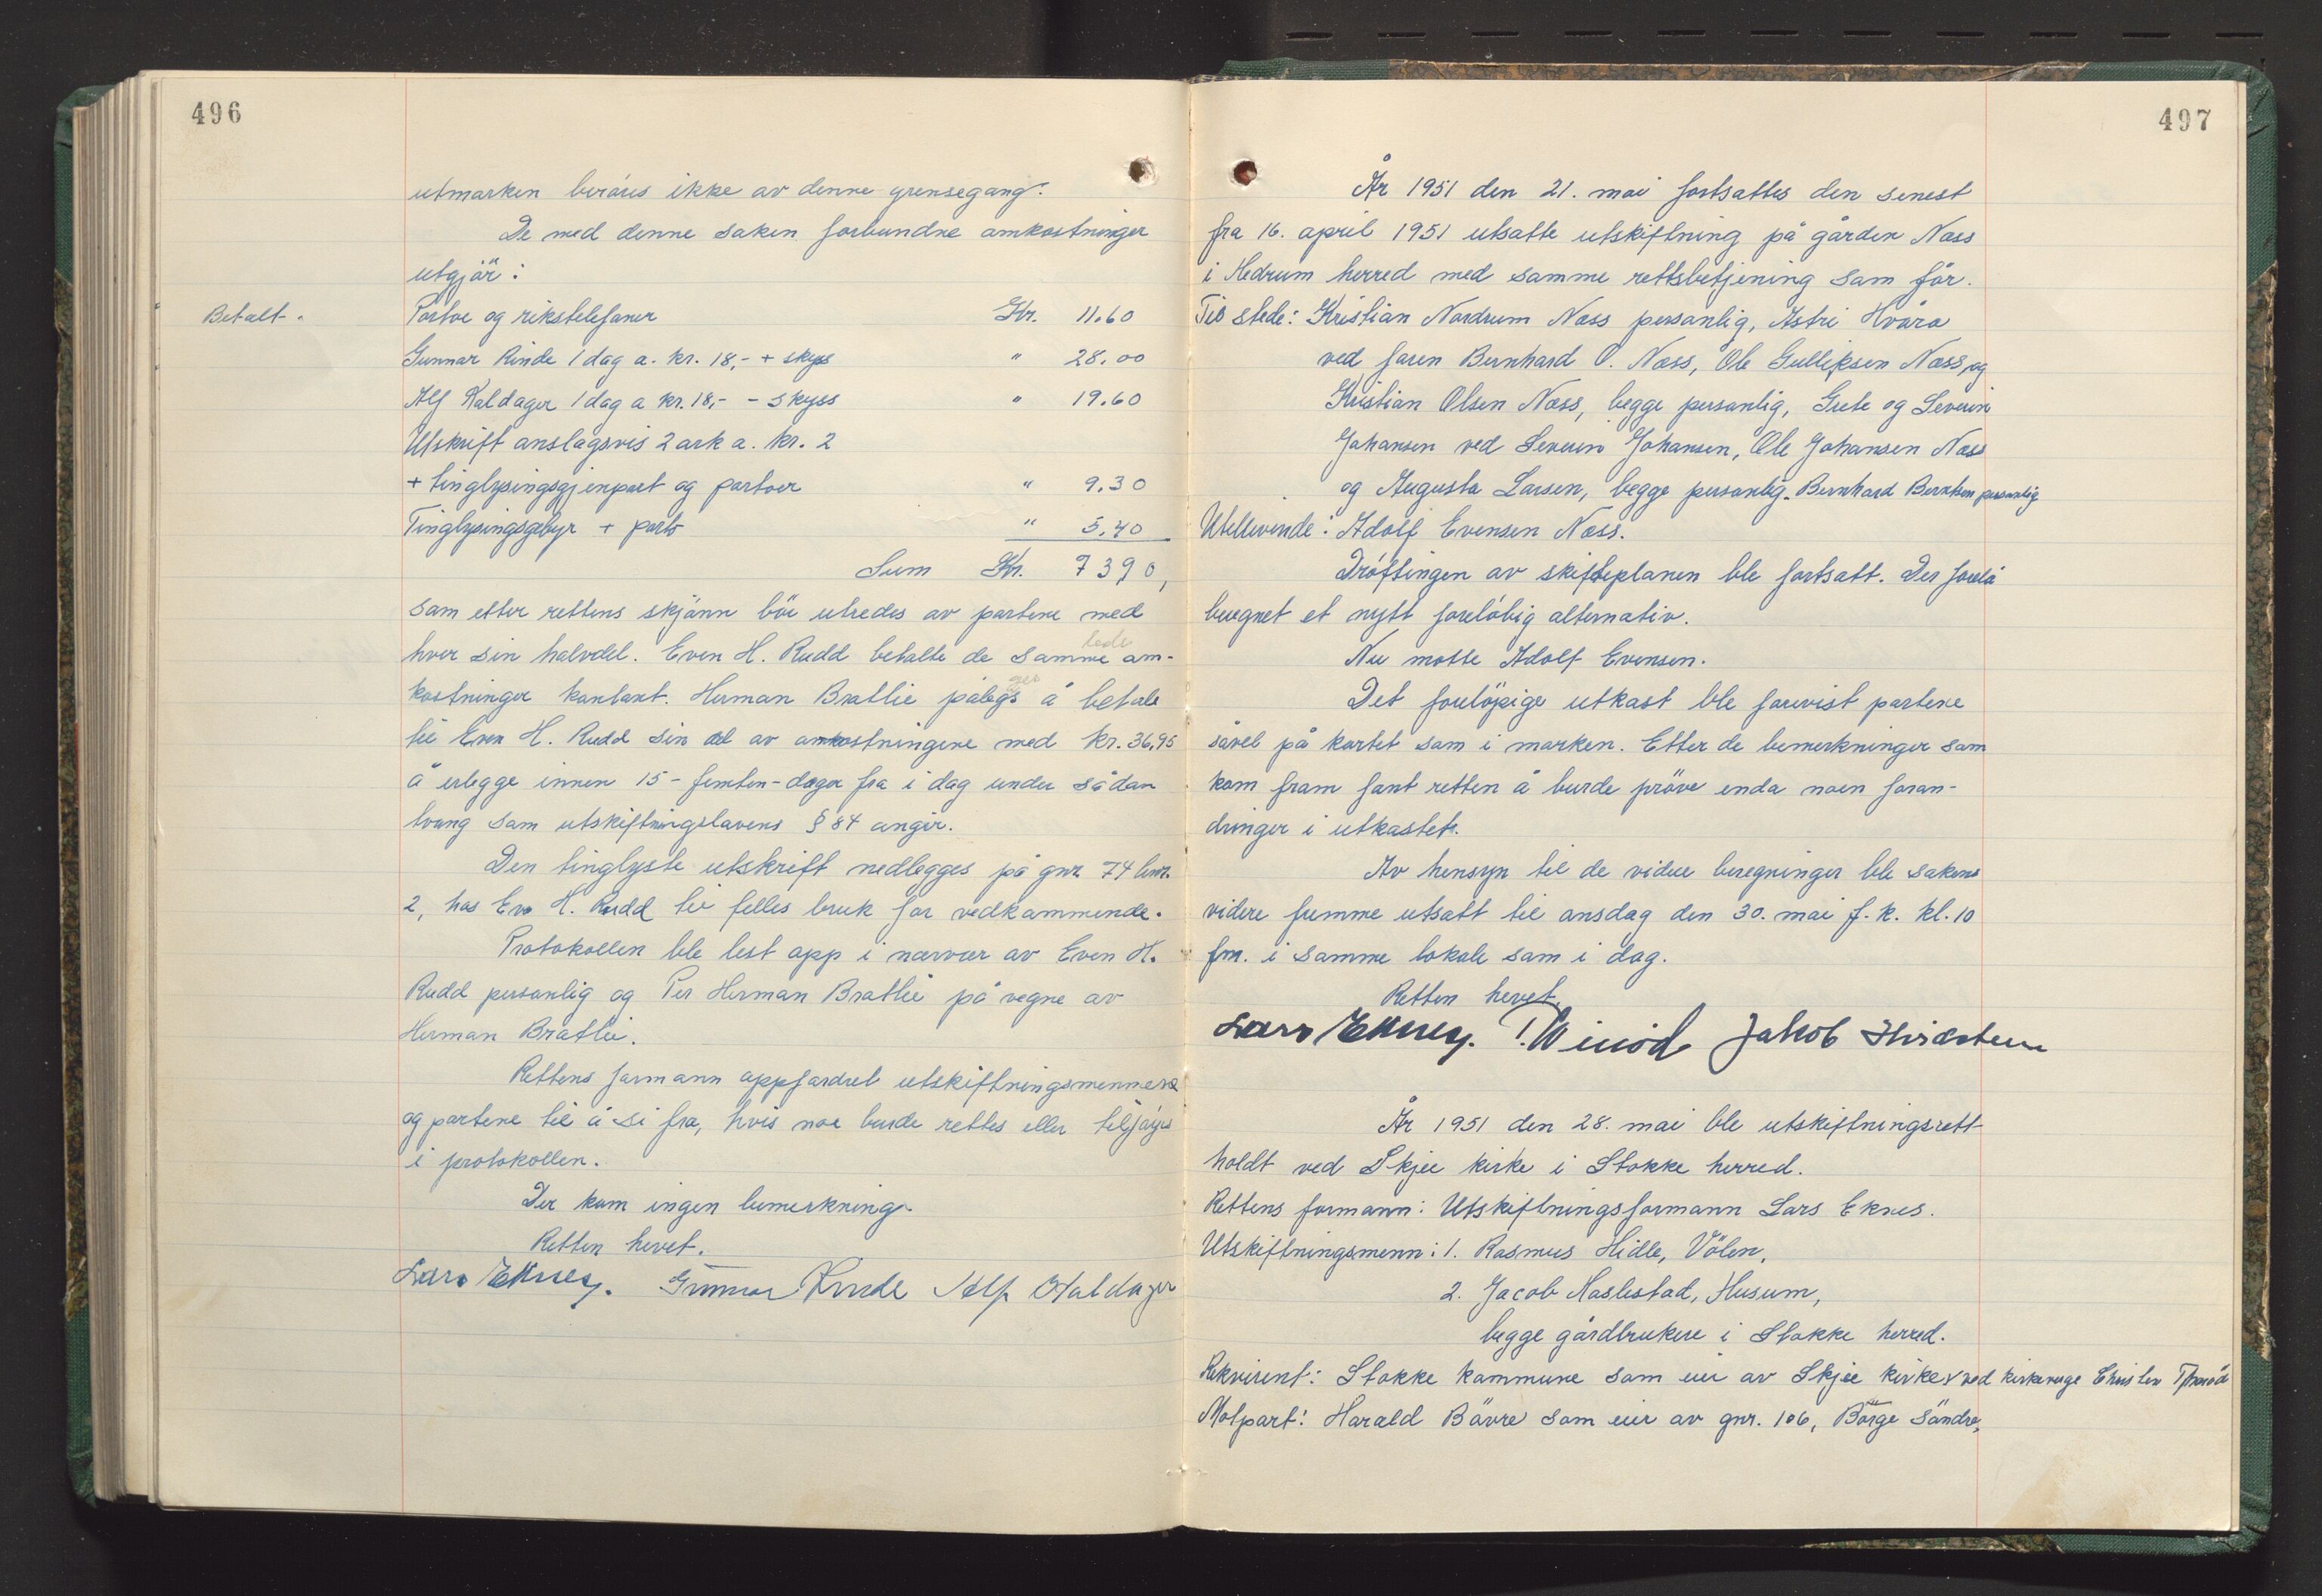 496
utmarken beröres ikke av denne grensegang.
De med denne saken forbundne omkostninger
utgjör:
Betalt.
Portoe og rikstelefoner Kr. 11.60
Gunnar Rinde 1 dag a. kr. 18,- + skyss " 28.00
Alf Haldager 1 dag a kr. 18,- - skyss " 19.60
Utskrift anslagsvis 2 ark a. kr. 2
+ tinglysingsgjenpart og portoer " 9.30
Tinglysingsgebyr + porto " 5.40
Sum Kr. 7390,
som etter rettens skjönn bör utredes av partene med
hver sin halvdel. Even H. Rudd betalte de samme om-
kostninger kontant. Herman Bratlie pålegs å betale
til Even H. Rudd sin del av omkostningene med kr. 36,95
å erlegge innen 15 - femten - dager fra i dag under sådan
tvang som utskiftningslovens § 84 angir.
Den tinglyste utskrift nedlegges på gnr. 74 bnr.
2, hos Even H. Rudd til felles bruk for vedkommende.
Protokollen ble lest opp i nærvær av Even H.
Rudd personlig og Per Herman Bratlie på vegne av
Herman Bratlie.
Rettens formann oppfordret utskiftningsmennene
og partene til å si fra, hvis noe burde rettes eller tilföyes
i protokollen.
Der kom ingen bemerkning.
Retten hevet.
Lars Eknes. Gunnar Rinde Alf Haldager
497
År 1951 den 21. mai fortsattes den senest
fra 16. april 1951 utsatte utskiftning på gården Næss
i Hedrum herred med samme rettsbetjening som för.
Til stede: Kristian Nordrum Næss personlig, Astri Hvåra
ved faren Bernhard O. Næss, Ole Gulliksen Næss, og
Kristian Olsen Næss, begge personlig, Grete og Severin
Johansen ved Severin Johansen, Ole Johansen Næss
og Augusta Larsen, begge personlig. Bernhard Berntsen personlig
Uteblivende: Adolf Evensen Næss.
Dröftingen av skifteplanen ble fortsatt. Der forelå
beregnet et nytt forelöbig alternativ.
Nu møtte Adolf Evensen.
Det forelöpige utkast ble forevist partene
såvel på kartet som i marken. Etter de bemerkninger som
kom fram fant retten å burde pröve enda noen foran-
dringer i utkastet.
Av hensyn til de videre beregninger ble sakens
videre fremme utsatt til onsdag den 30. mai f.k. kl. 10
fm. i samme lokale som i dag.
Retten hevet.
Lars Eknes. Jakob
År 1951 den 28. mai ble utskiftningsrett
holdt ved Skjee kirke i Stokke herred.
Rettens formann: Utskiftningsformann Lars Eknes.
Utskiftningsmenn: 1. Rasmus Hidle, Völen,
2. Jacob Haslestad, Husum,
begge gårdbrukere i Stokke herred.
Rekvirent: Stokke kommune som eier av Skjee kirke ved kirkeverge
Motpart: Harald Bövre som eier av gnr. 106, Borge Söndre,